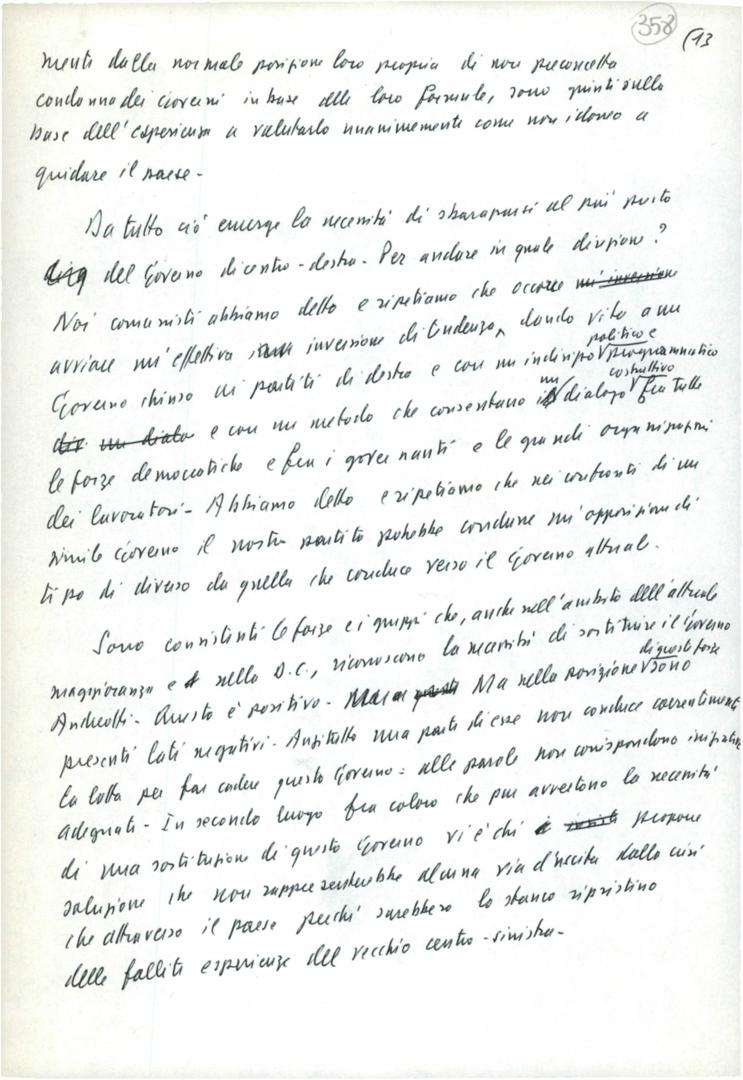 358 (13
menti dalla normale posizione loro propria di non preconcetta
condanna dei Governi in base alle loro formule, sono giunti sulla
base dell'esperienza a valutarlo unanimemente come non idoneo a
guidare il paese -
Da tutto ciò emerge la necessità di sbarazzarsi al più presto
del Governo di centro-destra - Per andare in quale direzione?
Noi comunisti abbiamo detto e ripetiamo che occorre un'inversione
avviare un'effettiva inversione di tendenza, dando vita a un
politico e
Governo chiuso ai partiti di destra e con un indirizzo programmatico
un costruttivo
dir un dialo e con un metodo che consentano dialogo fra tutte
le forze democratiche e fra i governanti e le grandi organizzazioni
dei lavoratori - Abbiamo detto e ripetiamo che nei confronti di un
simile Governo il nostro partito potrebbe condurre un'opposizione di
tipo di diverso da quella che conduce verso il Governo attuale.
Sono consistenti le forze e i gruppi che, anche nell'ambito dell'attuale
maggioranza e nella D.C., riconoscono la necessità di sostituire il Governo
di queste forze
Andreotti - Questo è positivo - Ma Ma nella posizione sono
presenti lati negativi - Anzitutto una parte di esse non conduce coerentemente
la lotta per far cadere questo Governo: alle parole non corrispondono iniziative
adeguate - In secondo luogo fra coloro che pur avvertono la necessità
di una sostituzione di questo Governo vi è chi propone
soluzione che non rappresenterebbe alcuna via d'uscita dalla crisi
che attraversa il paese perché sarebbero lo stanco ripristino
delle fallite esperienze del vecchio centro-sinistra -